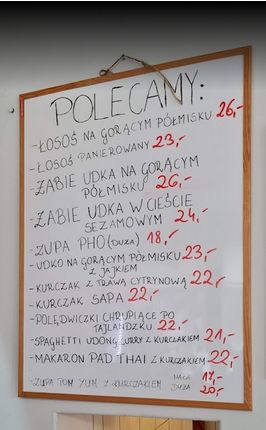 POLECAMY:
-ŁOSOŚ NA GORĄCYM PÓŁMISKU 26,-
-ŁOSOŚ PANIEROWANY 23,-
-ŻABIE UDKA NA GORĄCYM
PÓŁMISKU 26,-
-ŻABIE UDKA W CIEŚCIE
SEZAMOWYM 24,-
-ZUPA PHO (DUŻA) 18,-
-UDKO NA GORĄCYM PÓŁMISKU 23,-
Z JAJKIEM
-KURCZAK Z TRAWĄ CYTRYNOWĄ 22,-
-KURCZAK SAPA 22,-
-POLĘDWICZKI CHRUPIĄCE PO
TAJLANDZKU 22,-
-SPAGHETTI UDONG CURRY Z KURCZAKIEM 21,-
-MAKARON PAD THAI Z KURCZAKIEM 22,-
-ZUPA TOM YUM Z KURCZAKIEM MAŁA 17,-
DUŻA 20,-